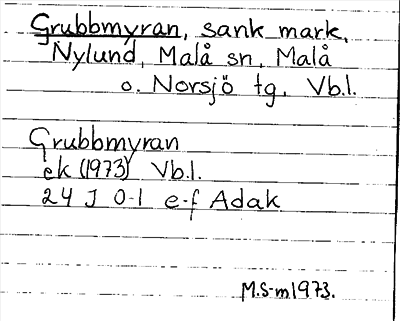 Grubbmyran, sank mark,
Nylund, Malå sn, Malå
o. Norsjö tg, Vb.l.
Grubbmyran
ek (1973) Vb.l.
24 J 0-1 e-f Adak
M.S-m1973.